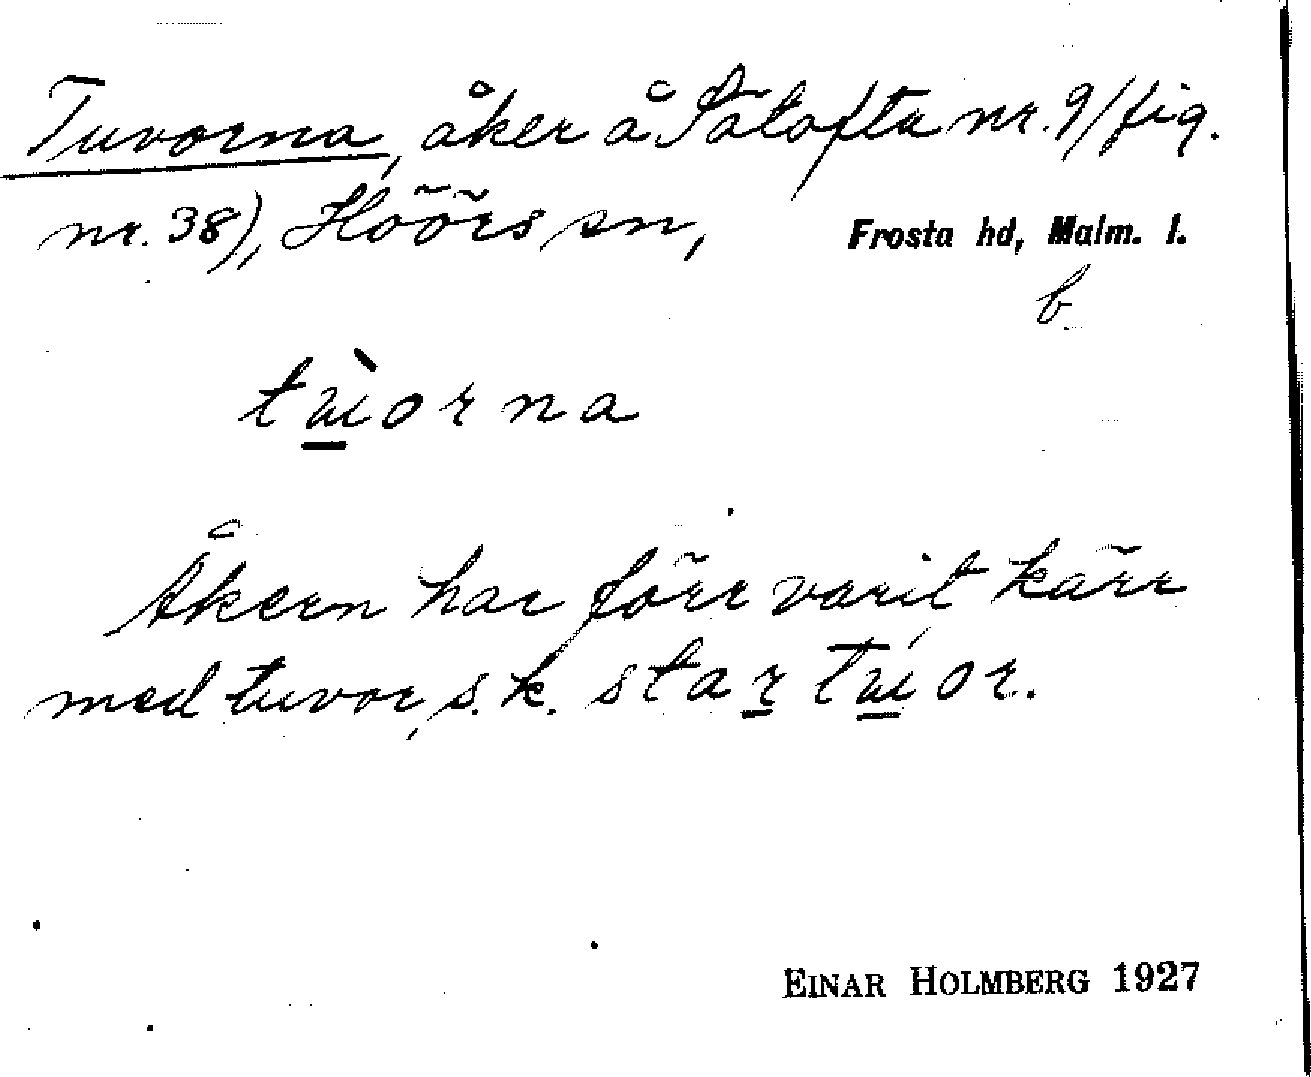 Tuvorna, åker å Sätofta nr. 9 (fig.
nr. 38), Höörs sn, Frosta hd, Malm. l.
b
tùorna
Åkern har förr varit kärr
med tuvor, s.k. startúor.
EINAR HOLMBERG 1927